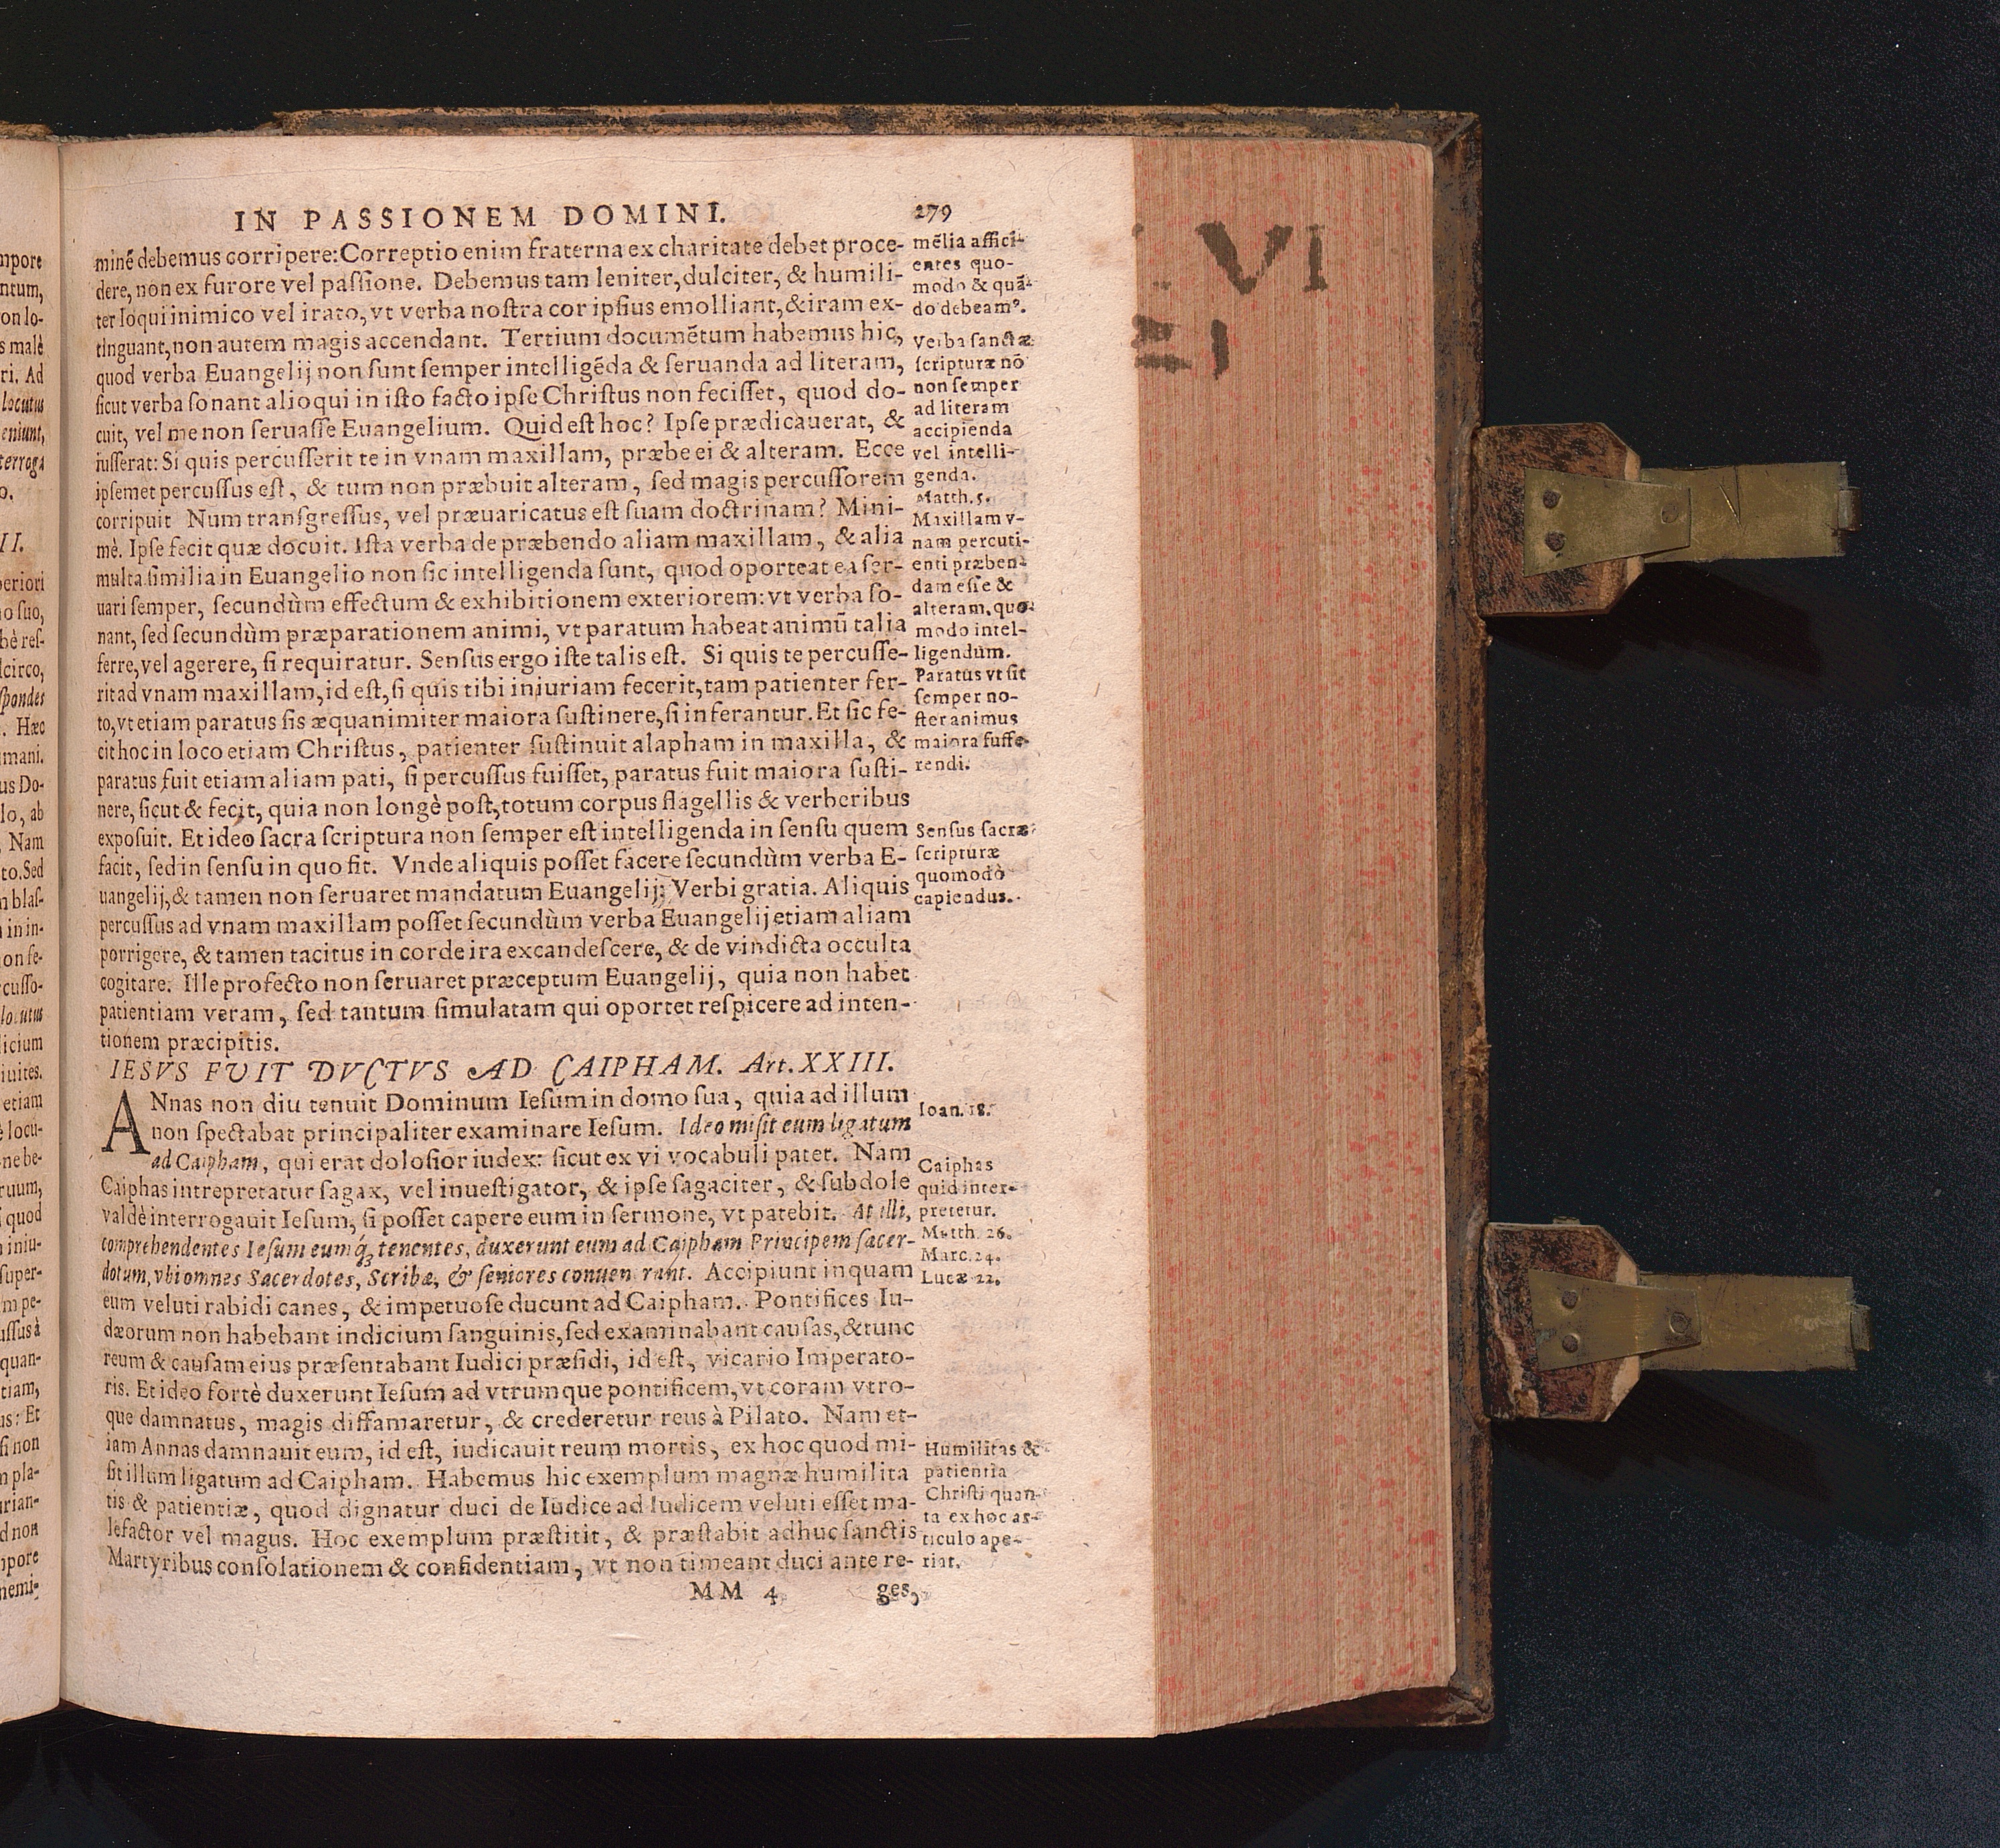 IN PASSIONEM DOMINI. 279
minē debemus corripere: Correptio enim fraterna ex charitate debet proce-
dere, non ex furore vel paſſione. Debemus tam leniter, dulciter, & humili-
ter loqui inimico vel irato, vt verba noſtra cor ipſius emolliant, & iram ex-
tinguant, non autem magis accendant. Tertium documētum habemus hic,
quod verba Euangelij non ſunt ſemper intelligēda & ſeruanda ad literam,
ſicut verba ſonant alioqui in iſto facto ipſe Chriſtus non feciſſet, quod do-
cuit, vel me non ſeruaſſe Euangelium. Quid eſt hoc? Ipſe prædicauerat, &
iuſſerat: Si quis percuſſerit te in vnam maxillam, præbe ei & alteram. Ecce
ipſemet percuſſus eſt, & tum non præbuit alteram, ſed magis percuſſorem
corripuit Num tranſgreſſus, vel præuaricatus eſt ſuam doctrinam? Mini-
mè. Ipſe fecit quæ docuit. Iſta verba de præbendo aliam maxillam, & alia
multa ſimilia in Euangelio non ſic intelligenda ſunt, quod oporteat ea ſer-
uari ſemper, ſecundùm effectum & exhibitionem exteriorem: vt verba ſo-
nant, ſed ſecundùm præparationem animi, vt paratum habeat animū talia
ferre, vel agerere, ſi requiratur. Senſus ergo iſte talis eſt. Si quis te percuſſe-
rit ad vnam maxillam, id eſt, ſi quis tibi iniuriam fecerit, tam patienter fer-
to, vt etiam paratus ſis æquanimiter maiora ſuſtinere, ſi inferantur. Et ſic fe-
cit hoc in loco etiam Chriſtus, patienter ſuſtinuit alapham in maxilla, &
paratus fuit etiam aliam pati, ſi percuſſus fuiſſet, paratus fuit maiora ſuſti-
nere, ſicut & fecit, quia non longè poſt, totum corpus flagellis & verberibus
expoſuit. Et ideo ſacra ſcriptura non ſemper eſt intelligenda in ſenſu quem
facit, ſed in ſenſu in quo fit. Vnde aliquis poſſet facere ſecundùm verba E-
uangelij, & tamen non ſeruaret mandatum Euangelij; Verbi gratia. Aliquis
percuſſus ad vnam maxillam poſſet ſecundùm verba Euangelij etiam aliam
porrigere, & tamen tacitus in corde ira excandeſcere, & de vindicta occulta
cogitare. Ille profecto non ſeruaret præceptum Euangelij, quia non habet
patientiam veram, ſed tantum ſimulatam qui oportet reſpicere ad inten-
tionem præcipitis.
IESVS FVIT DVCTVS AD CAIPHAM. Art. XXIII.
ANnas non diu tenuit Dominum Ieſum in domo ſua, quia ad illum
non ſpectabat principaliter examinare Ieſum. Ideo miſit eum ligatum
ad Caipham, qui erat doloſior iudex: ſicut ex vi vocabuli patet. Nam
Caiphas intrepretatur ſagax, vel inueſtigator, & ipſe ſagaciter, & ſubdole
valdè interrogauit Ieſum, ſi poſſet capere eum in ſermone, vt patebit. At illi,
comprehendentes Ieſum eumq́; tenentes, duxerunt eum ad Caipham Principem ſacer-
dotum, vbi omnes Sacerdotes, Scribæ, & ſeniores conuenerunt. Accipiunt inquam
eum veluti rabidi canes, & impetuoſe ducunt ad Caipham. Pontifices Iu-
dæorum non habebant indicium ſanguinis, ſed examinabant cauſas, & tunc
reum & cauſam eius præſentabant Iudici præſidi, id eſt, vicario Imperato-
ris. Et ideo fortè duxerunt Ieſum ad vtrumque pontificem, vt coram vtro-
que damnatus, magis diffamaretur, & crederetur reus à Pilato. Nam et-
iam Annas damnauit eum, id eſt, iudicauit reum mortis, ex hoc quod mi-
ſit illum ligatum ad Caipham. Habemus hic exemplum magnæ humilita
tis & patientiæ, quod dignatur duci de Iudice ad Iudicem veluti eſſet ma-
lefactor vel magus. Hoc exemplum præſtitit, & præſtabit adhuc ſanctis
Martyribus conſolationem & confidentiam, vt non timeant duci ante re-
MM 4 ges,
mēlia affici-
entes quo-
modo & quā-
do debeamꝰ.
Verba ſanctæ
ſcripturæ nō
non ſemper
ad literam
accipienda
vel intelli-
genda.
Matth. 5.
Maxillam v-
nam percuti-
enti præben-
dam eſſe &
alteram, quo-
modo intel-
ligendum.
Paratus vt ſit
ſemper no-
ſter animus
maiora ſuffe-
rendi.
Senſus ſacræ
ſcripturæ
quomodò
capiendus.
Ioan. 18.
Caiphas
quid inter-
pretetur.
Matth. 26.
Marc. 24.
Lucæ 22.
Humilitas &
patientia
Chriſti quan-
ta ex hoc ar-
ticulo ape-
riat.
VI